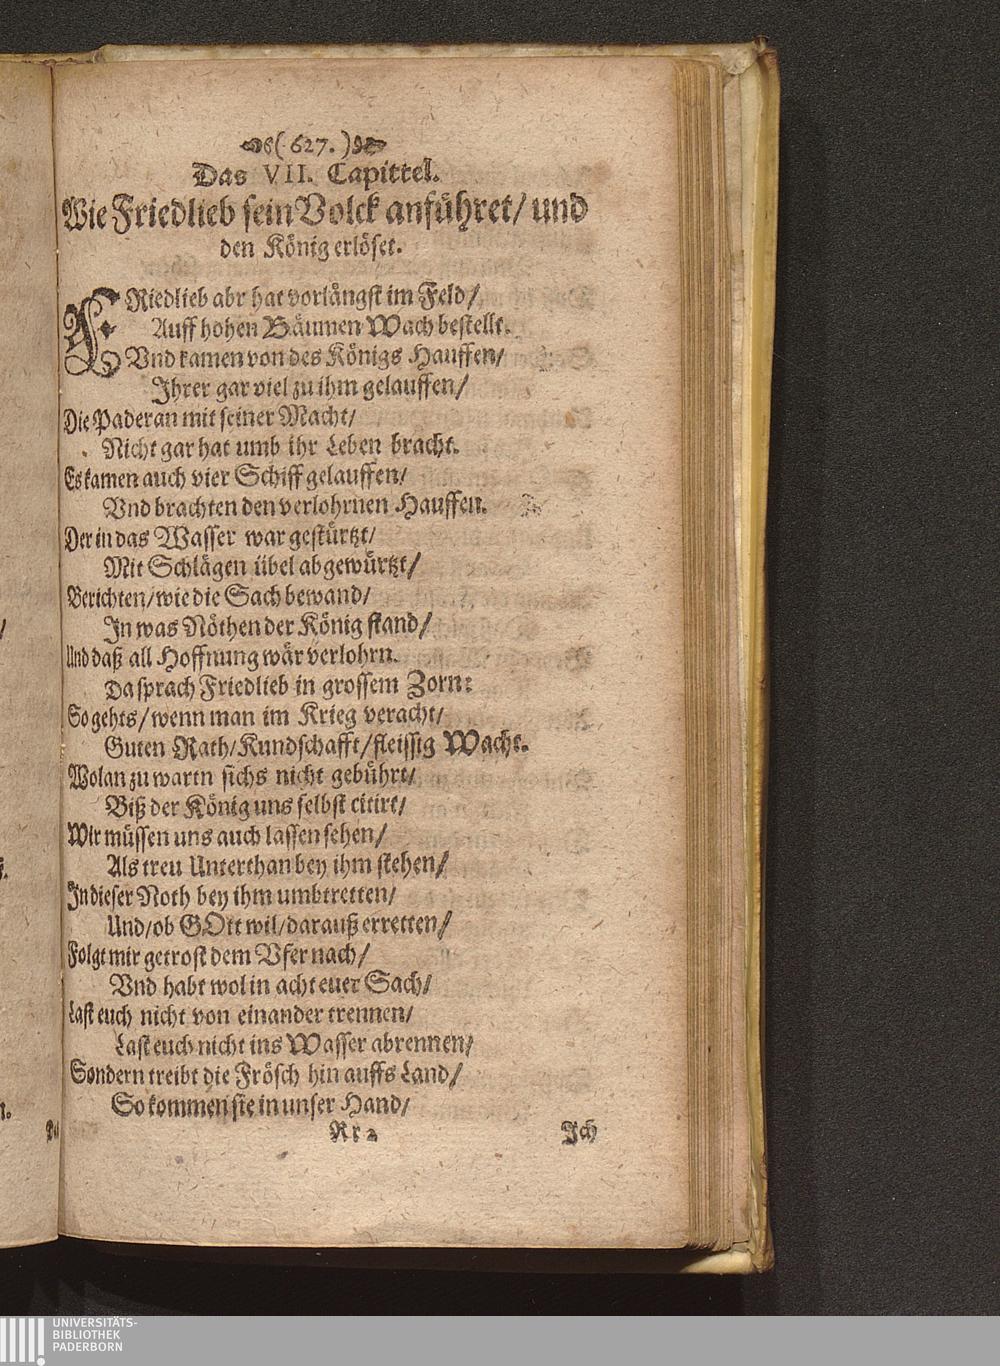 (627.)
Das VII. Capittel.
Wie Friedlieb sein Volck anführet/ und
den König erlöset.
FRiedlieb abr hat vorlängst im Feld/
Auff hohen Bäumen Wach bestellt.
Vnd kamen von des Königs Hauffen/
Ihrer gar viel zu ihm gelauffen/
Die Paderan mit seiner Macht/
Nicht gar hat umb ihr Leben bracht.
Es kamen auch vier Schiff gelauffen/
Vnd brachten den verlohrnen Hauffen.
Der in das Wasser war gestürtzt/
Mit Schlägen übel abgewürtzt/
Berichten/ wie die Sach bewand/
In was Nöthen der König stand/
Und daß all Hoffnung wär verlohrn.
Da sprach Friedlieb in grossem Zorn:
So gehts/ wenn man im Krieg veracht/
Guten Rath/ Kundschafft/ fleissig Wacht.
Wolan zu wartn sichs nicht gebührt/
Biß der König uns selbst citirt/
Wir müssen uns auch lassen sehen/
Als treu Unterthan bey ihm stehen/
In dieser Noth bey ihm umbtretten/
Und/ ob GOtt wil/ darauß erretten/
Folgt mir getrost dem Vfer nach/
Vnd habt wol in acht euer Sach/
Last euch nicht von einander trennen/
Last euch nicht ins Wasser abrennen/
Sondern treibt die Frösch hin auffs Land/
So kommen sie in unser Hand/
Rr 2
Ich
UNIVERSITÄTS-
BIBLIOTHEK
PADERBORN